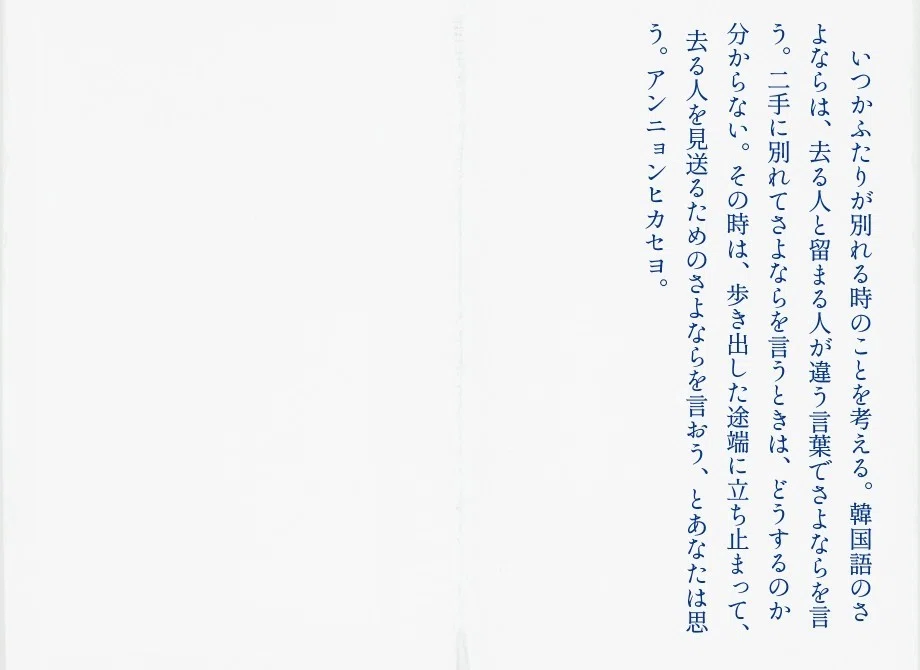 いつかふたりが別れる時のことを考える。韓国語のさ
よならは、去る人と留まる人が違う言葉でさよならを言
う。二手に別れてさよならを言うときは、どうするのか
分からない。その時は、歩き出した途端に立ち止まって、
去る人を見送るためのさよならを言おう、とあなたは思
う。アンニョンヒカセヨ。